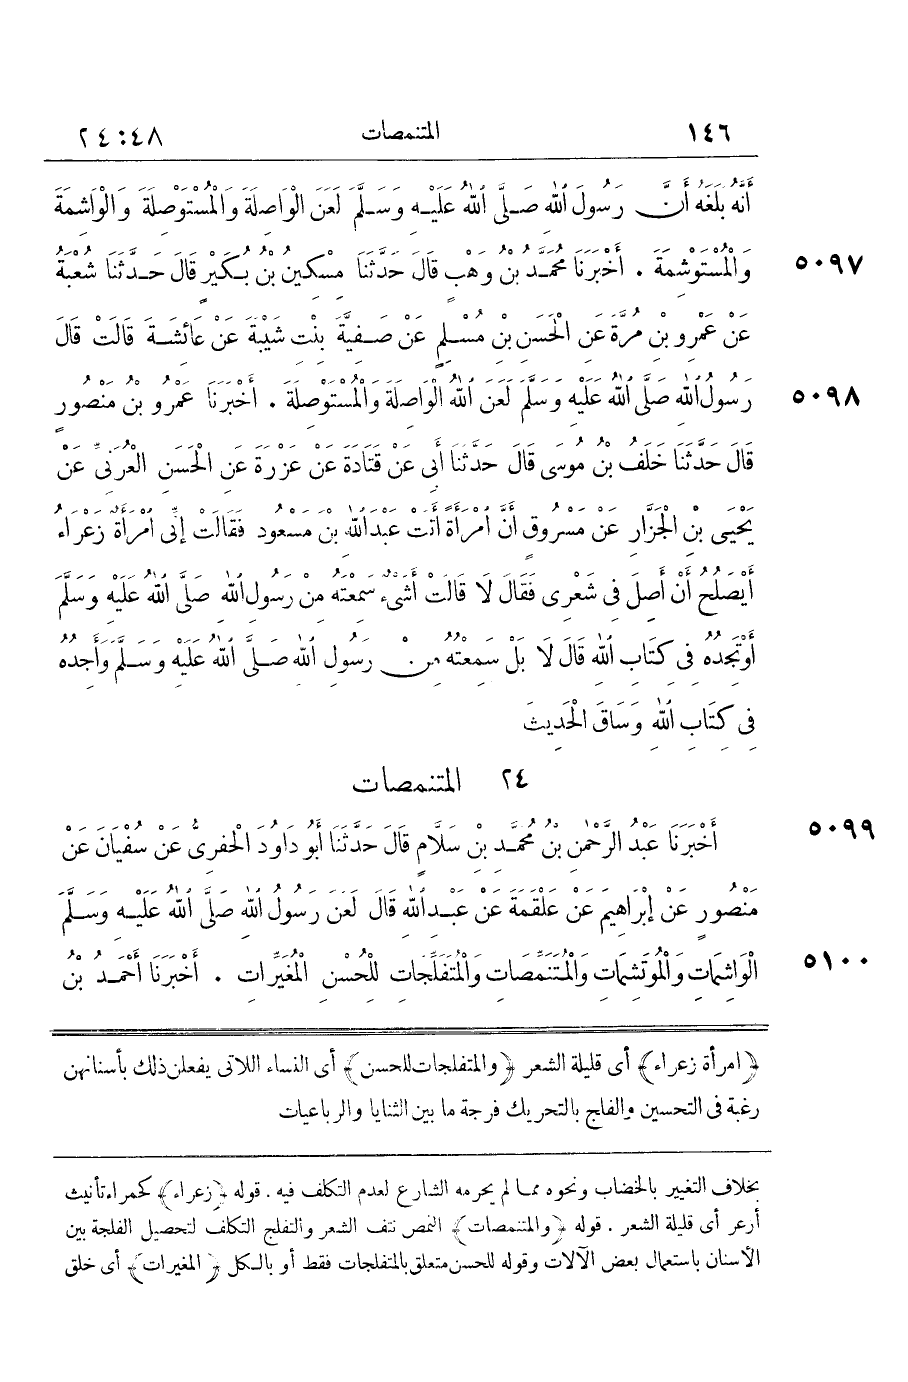 ١٤٦ المتنمصات ٤٨:٢٤
أَنَّهُ بَلَغَهُ أَنَّ رَسُولَ اللهِ صَلَّى اللهُ عَلَيْهِ وَسَلَّمَ لَعَنَ الْوَاصِلَةَ وَالْمُسْتَوْصِلَةَ وَالْوَاشِمَةَ
وَالْمُسْتَوْشِمَةَ . أَخْبَرَنَا مُحَمَّدُ بْنُ وَهْبٍ قَالَ حَدَّثَنَا مِسْكِينُ بْنُ بُكَيْرٍ قَالَ حَدَّثَنَا شُعْبَةُ ٥٠٩٧
عَنْ عَمْرِو بْنِ مُرَّةَ عَنِ الْحَسَنِ بْنِ مُسْلِمٍ عَنْ صَفِيَّةَ بِنْتِ شَيْبَةَ عَنْ عَائِشَةَ قَالَتْ قَالَ
رَسُولُ اللهِ صَلَّى اللهُ عَلَيْهِ وَسَلَّمَ لَعَنَ اللهُ الْوَاصِلَةَ وَالْمُسْتَوْصِلَةَ . أَخْبَرَنَا عَمْرُو بْنُ مَنْصُورٍ ٥٠٩٨
قَالَ حَدَّثَنَا خَلَفُ بْنُ مُوسَى قَالَ حَدَّثَنَا أَبِي عَنْ قَتَادَةَ عَنْ عَزْرَةَ عَنِ الْحَسَنِ الْعُرَنِيِّ عَنْ
يَحْيَى بْنِ الْجَزَّارِ عَنْ مَسْرُوقٍ أَنَّ امْرَأَةً أَتَتْ عَبْدَ اللهِ بْنَ مَسْعُودٍ فَقَالَتْ إِنِّي امْرَأَةٌ زَعْرَاءُ
أَيَصْلُحُ أَنْ أَصِلَ فِي شَعْرِي فَقَالَ لَا قَالَتْ أَشَيْءٌ سَمِعْتَهُ مِنْ رَسُولِ اللهِ صَلَّى اللهُ عَلَيْهِ وَسَلَّمَ
أَوْ تَجِدُهُ فِي كِتَابِ اللهِ قَالَ لَا بَلْ سَمِعْتُهُ مِنْ رَسُولِ اللهِ صَلَّى اللهُ عَلَيْهِ وَسَلَّمَ وَأَجِدُهُ
فِي كِتَابِ اللهِ وَسَاقَ الْحَدِيثَ
٢٤ المتنمصات
أَخْبَرَنَا عَبْدُ الرَّحْمٰنِ بْنُ مُحَمَّدِ بْنِ سَلَّامٍ قَالَ حَدَّثَنَا أَبُو دَاوُدَ الْحَفَرِيُّ عَنْ سُفْيَانَ عَنْ ٥٠٩٩
مَنْصُورٍ عَنْ إِبْرَاهِيمَ عَنْ عَلْقَمَةَ عَنْ عَبْدِ اللهِ قَالَ لَعَنَ رَسُولُ اللهِ صَلَّى اللهُ عَلَيْهِ وَسَلَّمَ
الْوَاشِمَاتِ وَالْمُوتَشِمَاتِ وَالْمُتَنَمِّصَاتِ وَالْمُتَفَلِّجَاتِ لِلْحُسْنِ الْمُغَيِّرَاتِ . أَخْبَرَنَا أَحْمَدُ بْنُ ٥١٠٠
﴿امرأة زعراء﴾ أى قليلة الشعر ﴿والمتفلجات للحسن﴾ أى النساء اللاتى يفعلن ذلك بأسنانهن
رغبة فى التحسين والفلج بالتحريك فرجة ما بين الثنايا والرباعيات
بخلاف التغيير بالخضاب ونحوه مما لم يحرمه الشارع لعدم التكلف فيه . قوله ﴿زعراء﴾ كحمراء تأنيث
أزعر أى قليلة الشعر . قوله ﴿والمتنمصات﴾ النمص نتف الشعر والتفلج التكلف لتحصيل الفلجة بين
الأسنان باستعمال بعض الآلات وقوله للحسن متعلق بالمتفلجات فقط أو بالكل ﴿المغيرات﴾ أى خلق